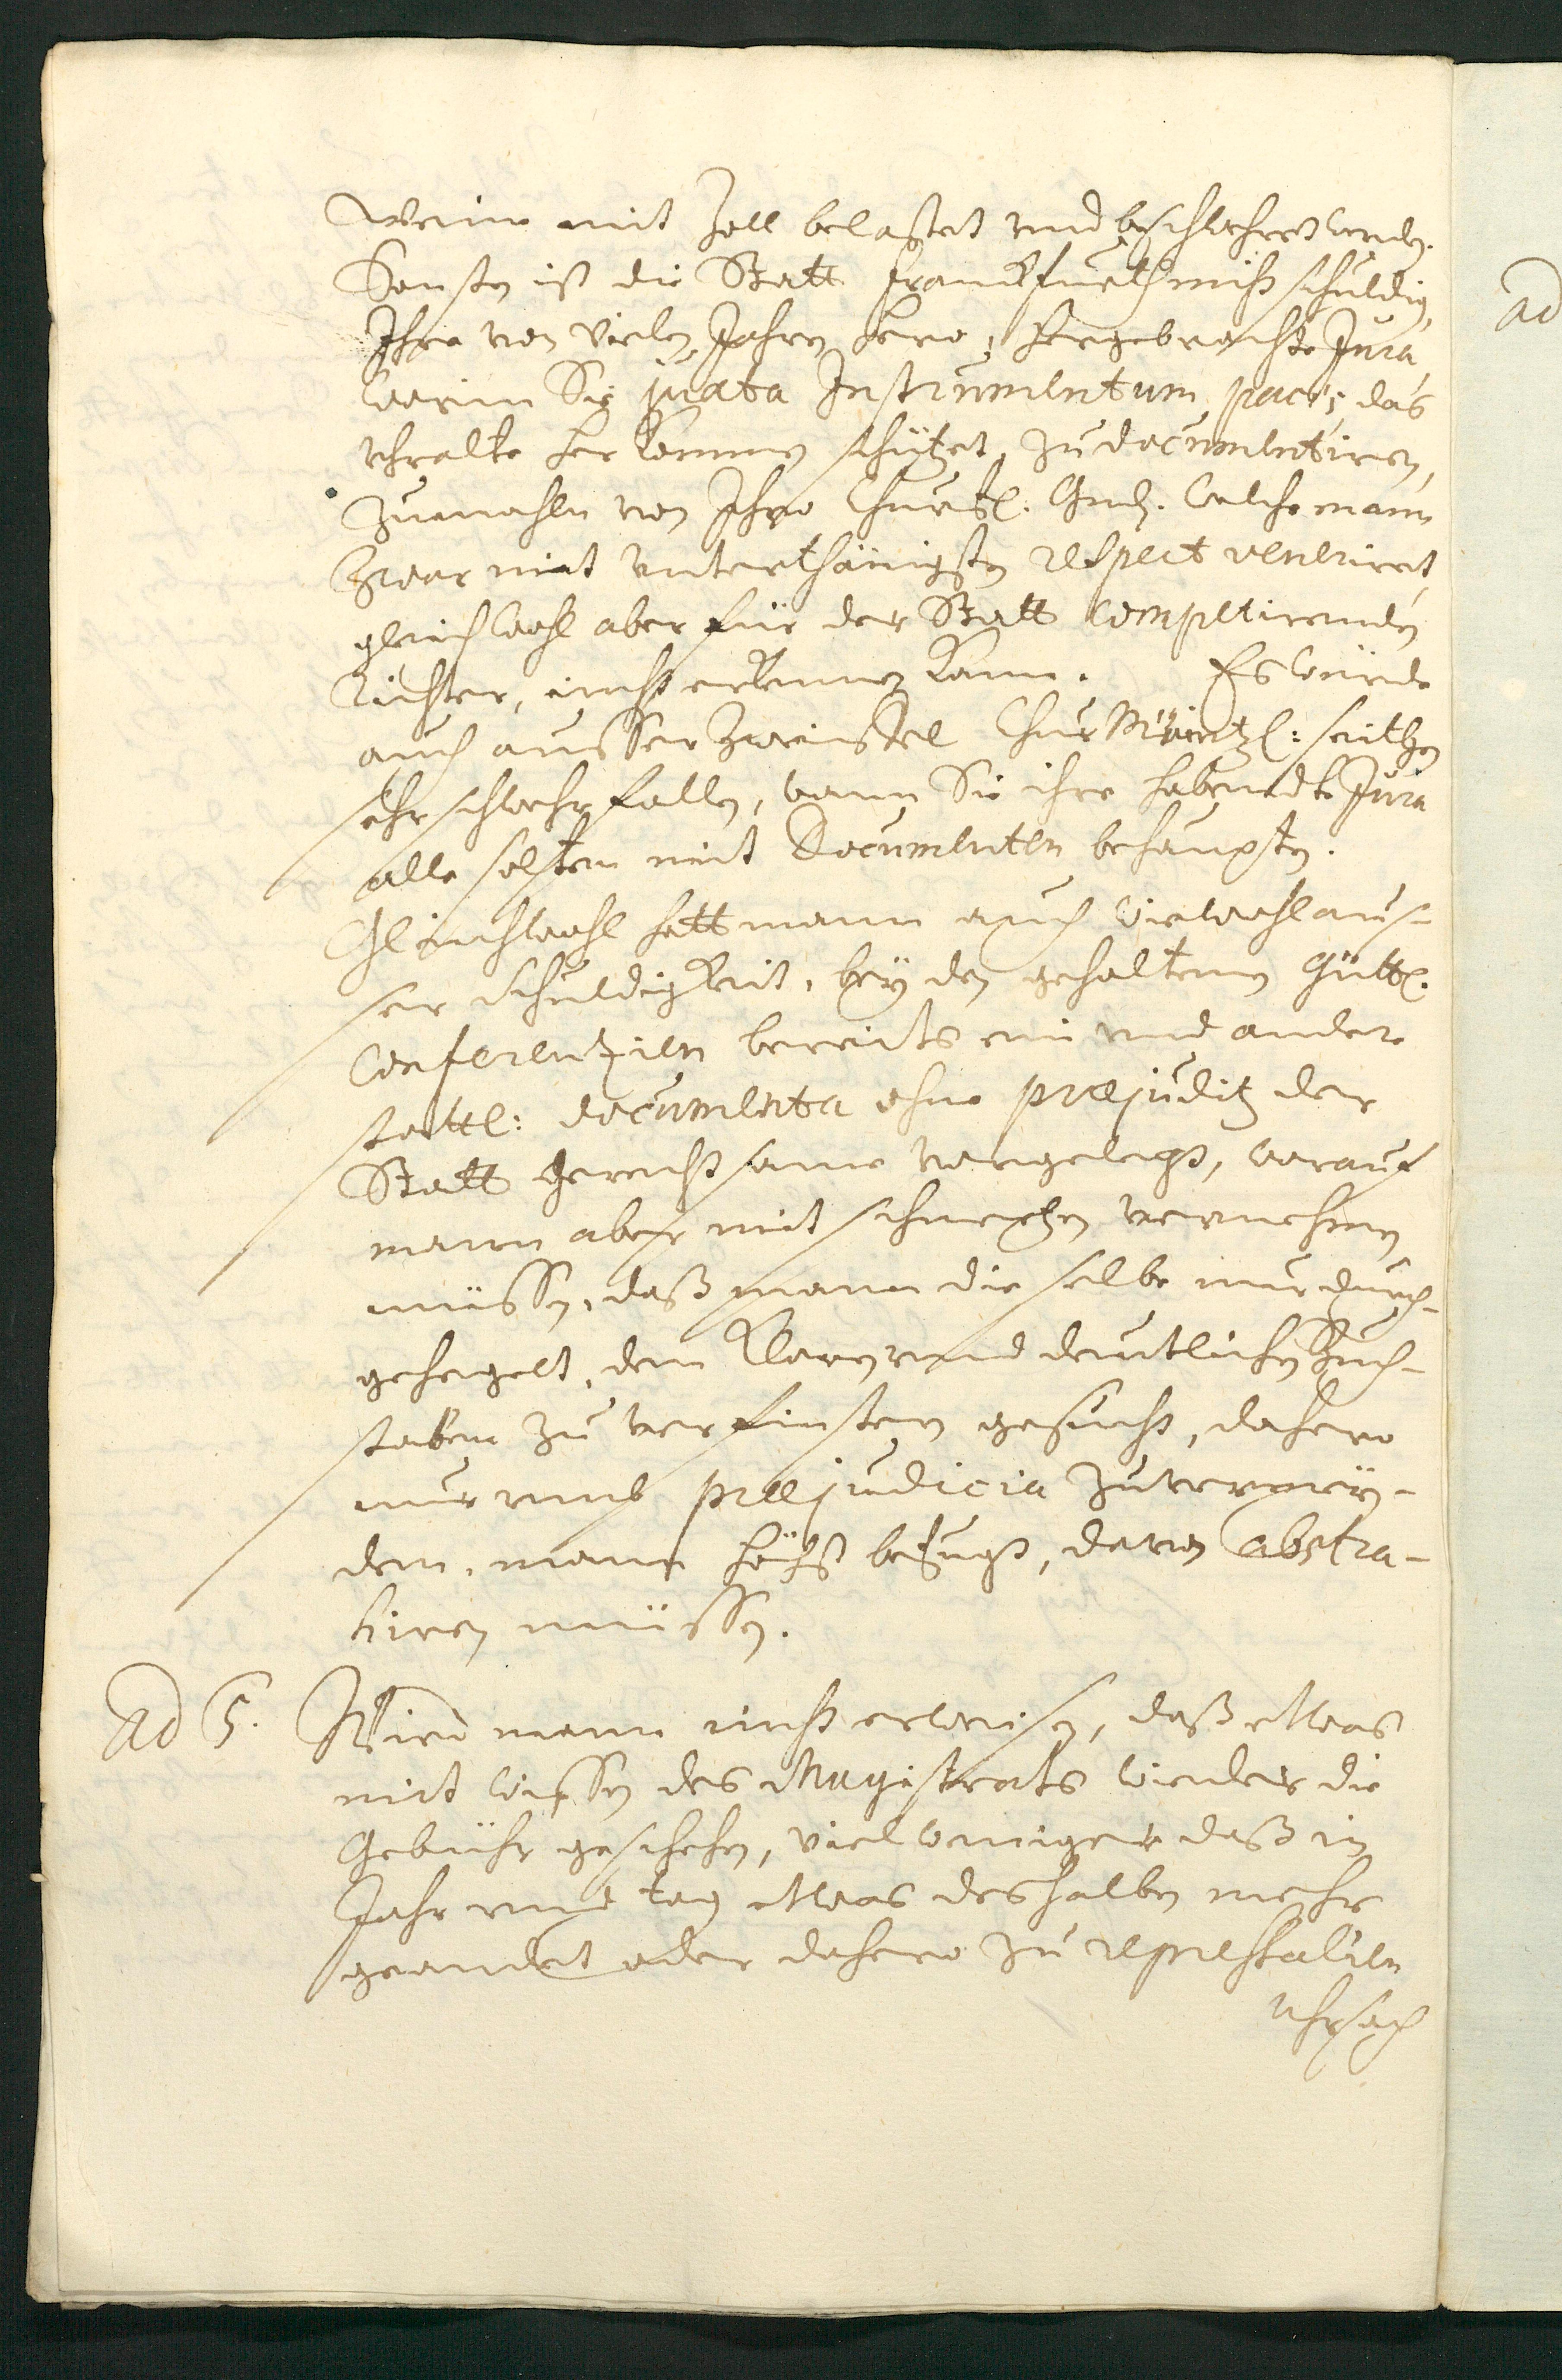 Weine mit Zoll belastet und beschwehret werden.
Sonsten ist die Statt Franckfurth nicht schuldig,
Ihre von vielen Jahren hero, hergebrachte Jura,
worinn Sie juxta Instrumentum pacis das
uhralte herkommen schützet, zu documentiren,
zumahlen von Ihro Churfstl. Gnd. welche mann
zwar mit unterthänigsten respect veneriret,
gleichwohl aber für der Statt competirenden
Richter, nicht erkennen kann. Es würde
auch ausser zweiffel ChurMäintzl: seithen
sehr schwehr fallen, wann Sie ihre habendte Jura
alle solten mit Documenten behaupten.
Gleichwohl hatt mann auch wiewohl aus-
ser schuldigkeit, bey den gehaltenen Güttl.
Conferentzien bereits ein und andere
stattl: documenta ohne præjuditz der
Statt gerechtsame vorgelegt, worauf
mann aber mit schmertzen vernehmen
müssen, daß mann dieselbe nur durch-
gehegelt, den klaren und deutlichen Buch-
staben zu verfinstern gesucht, dahero
nur umb præjudicia zu vermey-
den, mann höchst befugt, davon abstra-
hiren müssen.
Ad 5. Wird mann nicht erweisen, daß etwas
mit wissen des Magistrats wieder die
Gebühr geschehen, viel weniger daß in
Jahr und tag etwas deshalben mehr
geandet oder dahero zu repressalien
uhrsach
ad